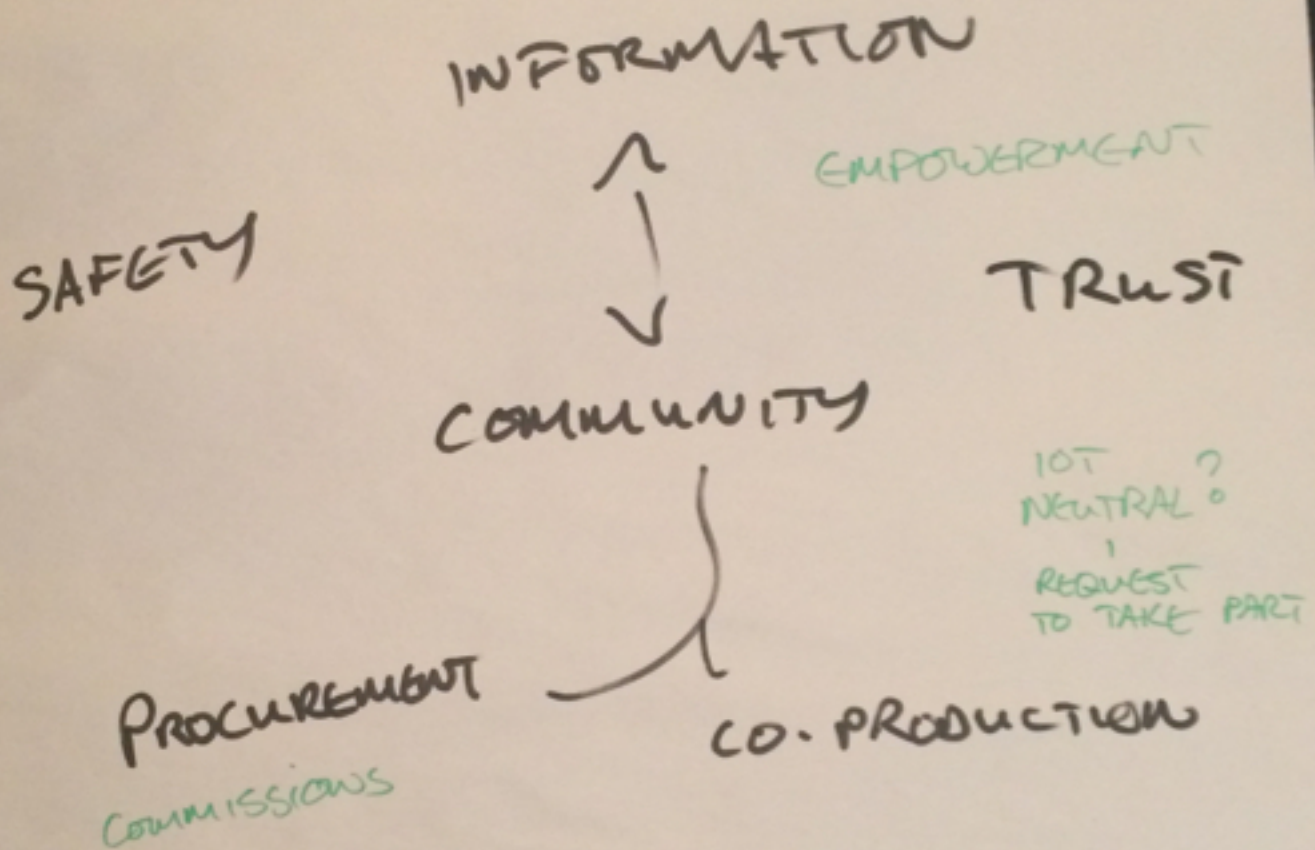 INFORMATION
EMPOWERMENT
SAFETY
TRUST
COMMUNITY
IOT ?
NEUTRAL ?
REQUEST
TO TAKE PART
PROCUREMENT
CO. PRODUCTION
COMMISSIONS